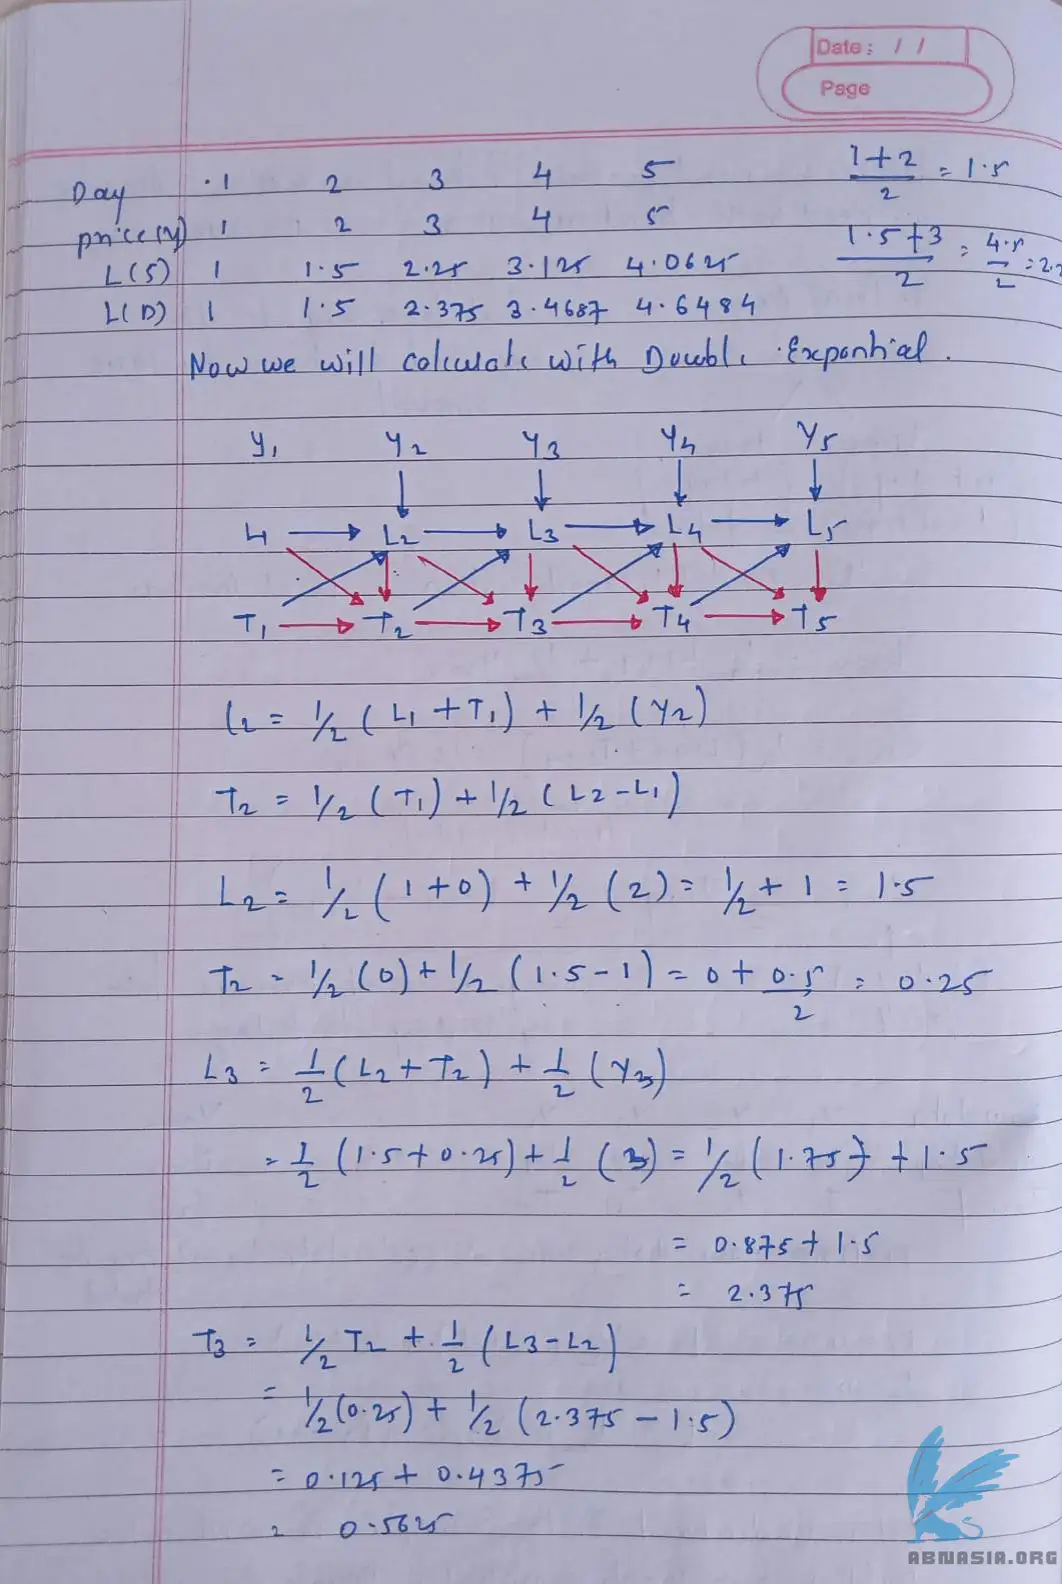 Date : / /
Page
Day .1 2 3 4 5
price(Y) 1 2 3 4 5
L(S) 1 1.5 2.25 3.125 4.0625
L(D) 1 1.5 2.375 3.4687 4.6484
1+2/2 = 1.5
1.5+3/2 = 4.5/2 = 2.2
Now we will calculate with Double Expontial.
Y1 Y2 Y3 Y4 Y5
L1 → L2 → L3 → L4 → L5
T1 → T2 → T3 → T4 → T5
L2 = 1/2 (L1 + T1) + 1/2 (Y2)
T2 = 1/2 (T1) + 1/2 (L2 - L1)
L2 = 1/2 (1+0) + 1/2 (2) = 1/2 + 1 = 1.5
T2 = 1/2 (0) + 1/2 (1.5 - 1) = 0 + 0.5/2 = 0.25
L3 = 1/2 (L2 + T2) + 1/2 (Y3)
= 1/2 (1.5+0.25) + 1/2 (3) = 1/2 (1.75) + 1.5
= 0.875 + 1.5
= 2.375
T3 = 1/2 T2 + 1/2 (L3 - L2)
= 1/2 (0.25) + 1/2 (2.375 - 1.5)
= 0.125 + 0.4375
= 0.5625
ABNASIA.ORG